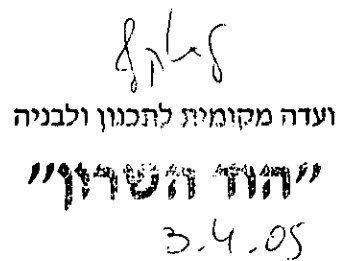 ועדה מקומית לתכנון ולבניה
"הוד השרון"
3.4.05